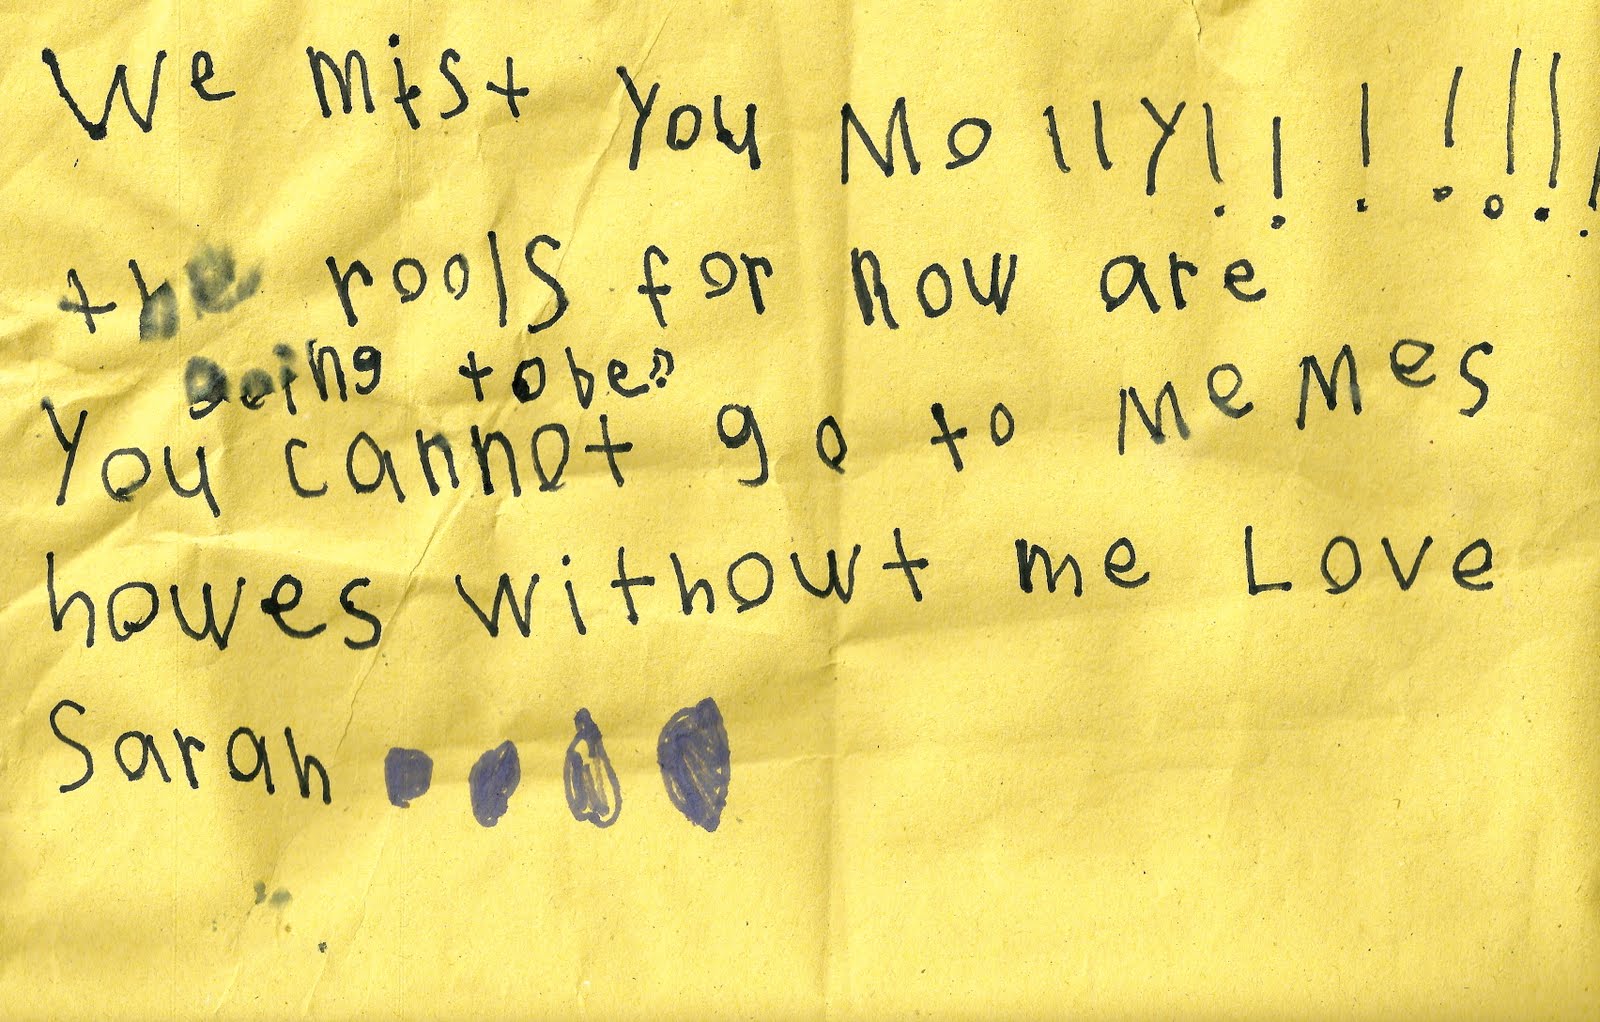 We mist you Molly!!!!!!!
the rools for now are
going to be??
You cannot go to MeMes
howes withowt me Love
Sarah